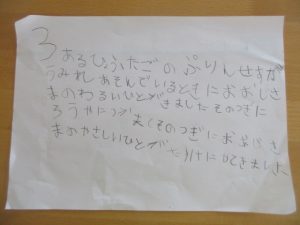 3
あるひふたごのぷりんせすが
うみれあそんでいるときにおおじさ
まのわるいひとがきましたそのつぎに
ろうやにつか まくそのつぎにおぷじさ
まのやさしいひとが にきました